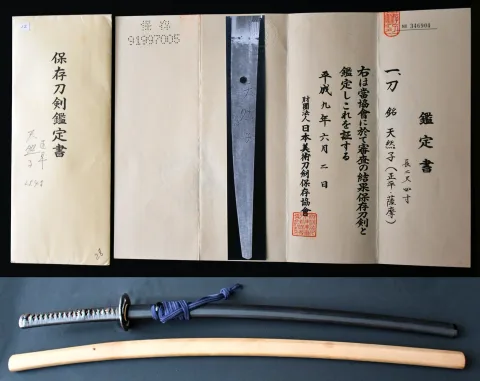 保存刀剣鑑定書
天然子
保存
91997005
天然子
346904
鑑定書
一、刀 銘 天然子（正平・薩摩）
長二尺四寸
右は當協會に於て審査の結果保存刀剣と
鑑定しこれを証する
平成九年六月二日
財團法人日本美術刀剣保存協會